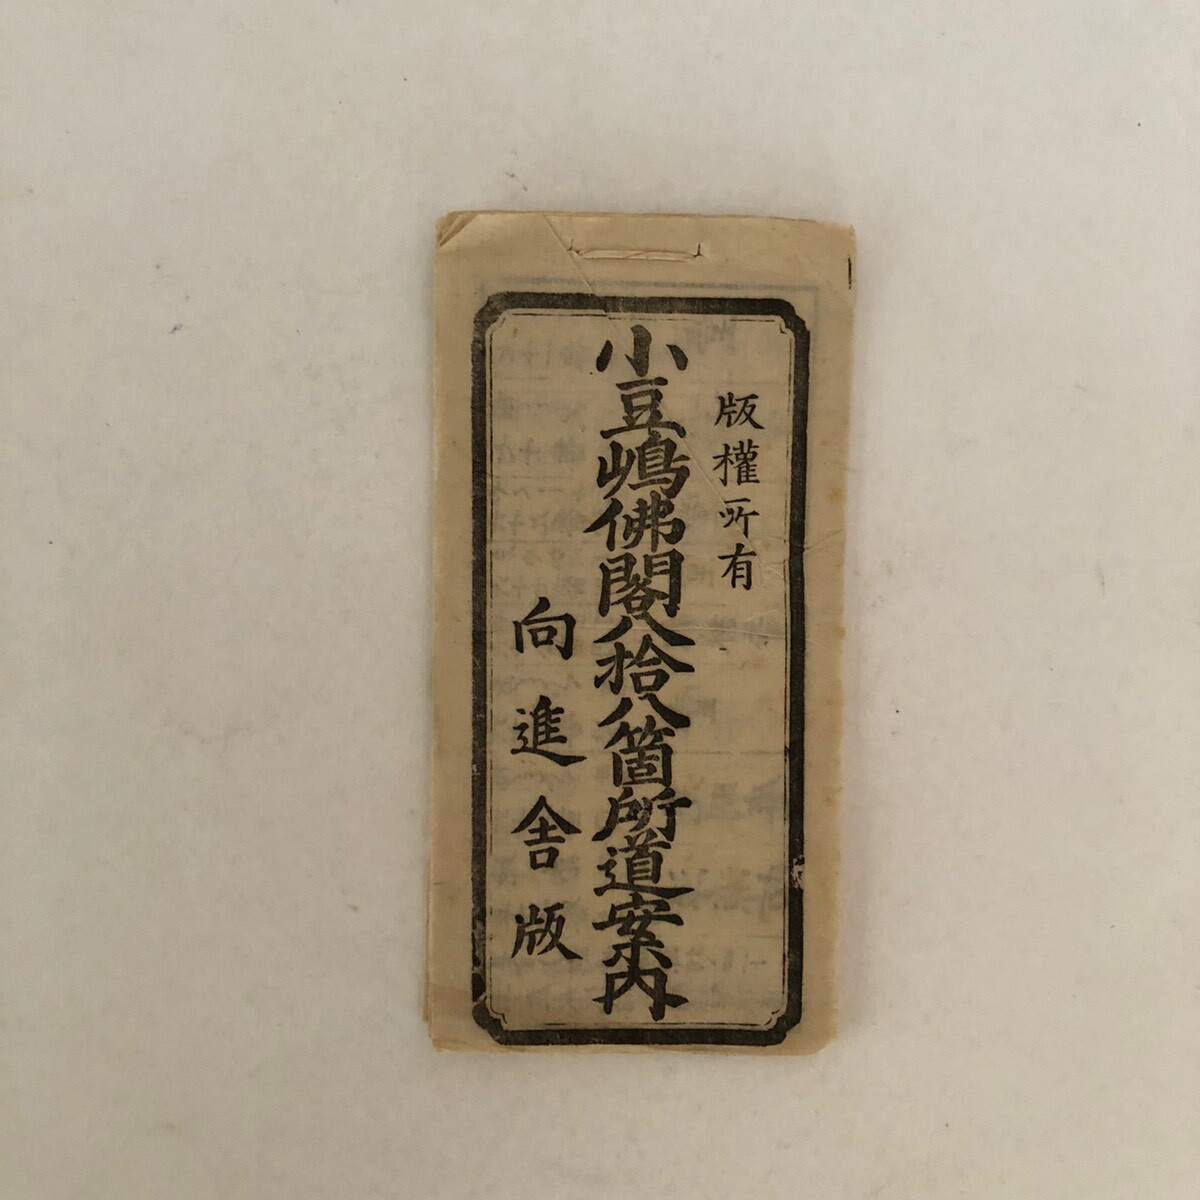 版權所有
小豆嶋佛閣八拾八箇所道案内
向進舎版